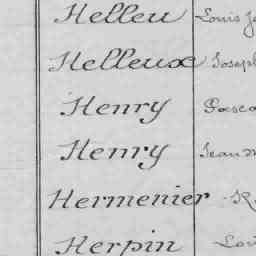 Helleu Louis
Helleux Joseph
Henry
Henry Jean
Hermenier
Herpin